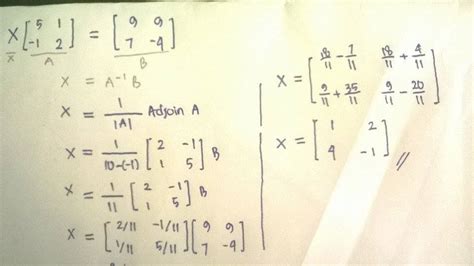 X [5 1; -1 2] = [9 9; 7 -4]
X A B
X = A⁻¹ B
X = 1/|A| Adjoin A
X = 1/(10-(-1)) [2 -1; 1 5] B
X = 1/11 [2 -1; 1 5] B
X = [2/11 -1/11; 1/11 5/11] [9 9; 7 -4]
X = [18/11 - 7/11 18/11 + 4/11; 9/11 + 35/11 9/11 - 20/11]
X = [1 2; 4 -1] //